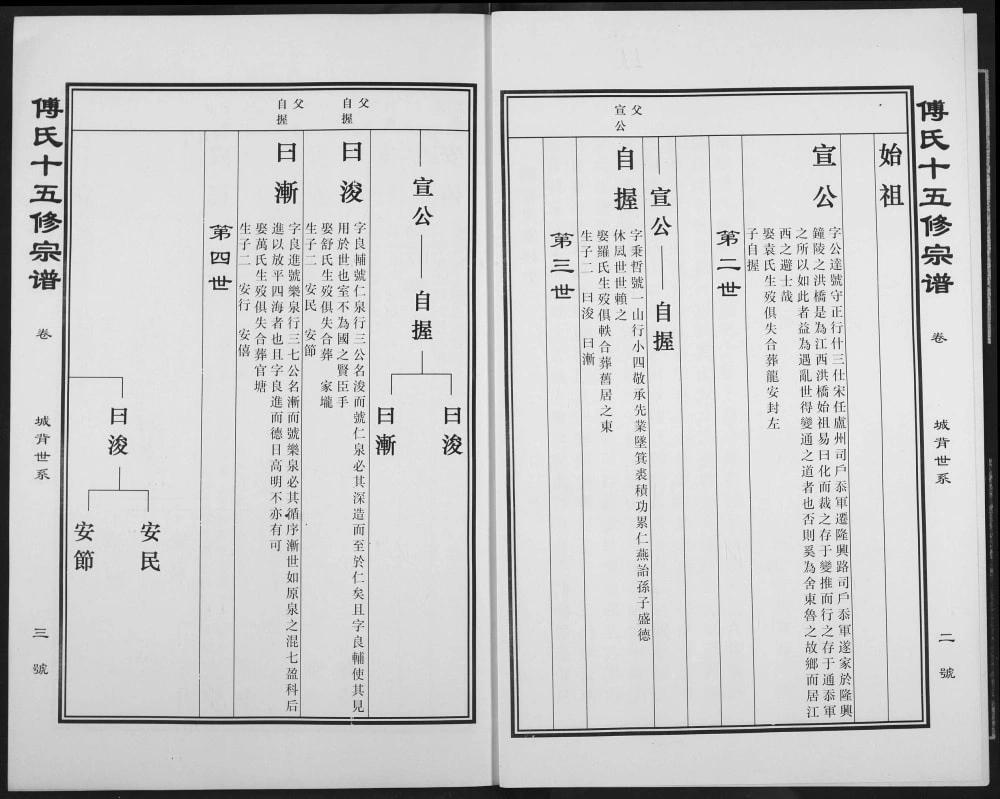 傅氏十五修宗谱
卷
城背世系
二號
始祖
宣公
字公達號守正行什三仕宋任盧州司戶叅軍遷隆興路司戶叅軍遂家於隆興
鐘陵之洪橋是為江西洪橋始祖易曰化而裁之存于變推而行之存于通叅軍
之所以如此者益為遇亂世得變通之道者也否則奚為舍東魯之故鄉而居江
西之避士哉
娶袁氏生歿俱失合葬龍安封左
子自握
第二世
宣公
自握
父
宣公
自握
字秉哲號一山行小四敬承先業墜箕裘積功累仁燕詒孫子盛德
休凨世世賴之
娶羅氏生歿俱軼合葬舊居之東
生子二 曰浚 曰漸
第三世
宣公
自握
曰浚
曰漸
父
自握
曰浚
字良輔號仁泉行三公名浚而號仁泉必其深造而至於仁矣且字良輔使其見
用於世也室不為國之賢臣手
娶舒氏生歿俱失合葬 家壠
生子二 安民 安節
父
自握
曰漸
字良進號樂泉行三七公名漸而號樂泉必其循序漸世如原泉之混七盈科后
進以放平四海者也且字良進而德日高明不亦有可
娶萬氏生歿俱失合葬官塘
生子二 安行 安僖
第四世
曰浚
安民
安節
傅氏十五修宗谱
卷
城背世系
三號